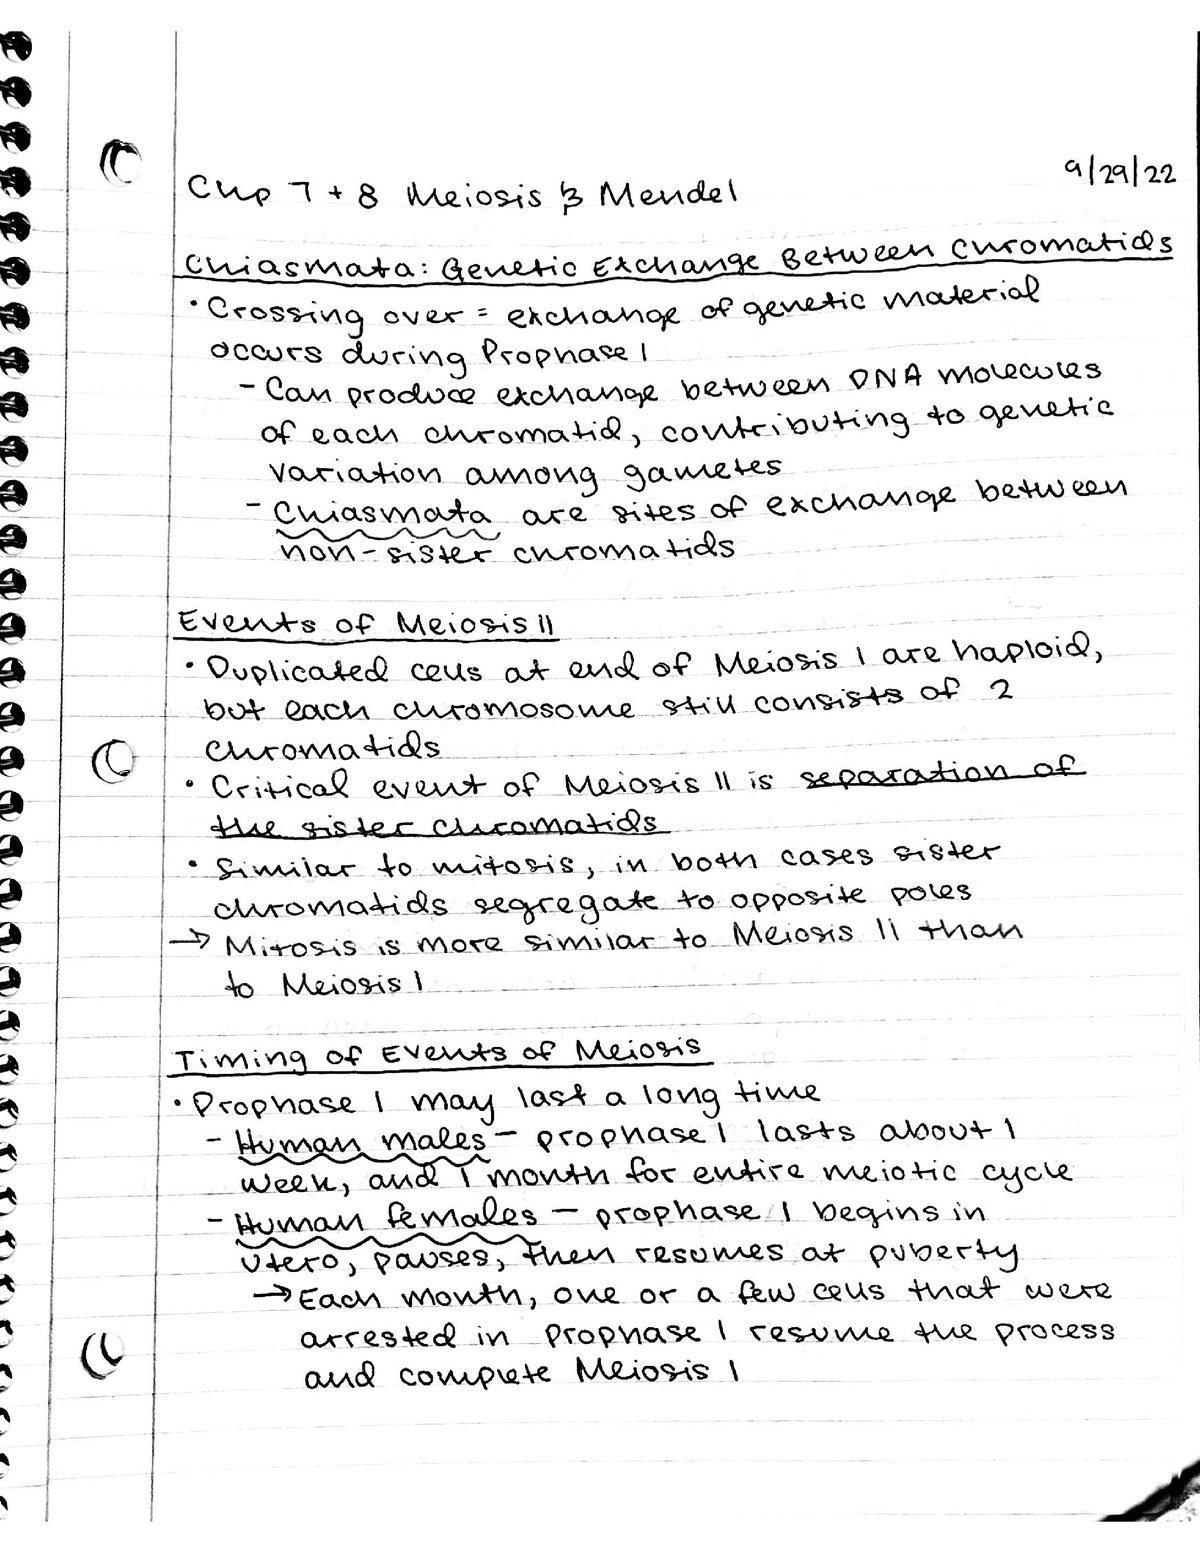 Chp 7 + 8 Meiosis & Mendel
9/29/22
Chiasmata: Genetic Exchange Between Chromatids
• Crossing over = exchange of genetic material
occurs during Prophase I
- Can produce exchange between DNA molecules
of each chromatid, contributing to genetic
variation among gametes
- Chiasmata are sites of exchange between
non-sister chromatids
Events of Meiosis II
• Duplicated cells at end of Meiosis I are haploid,
but each chromosome still consists of 2
chromatids
• Critical event of Meiosis II is separation of
the sister chromatids
• Similar to mitosis, in both cases sister
chromatids segregate to opposite poles
→ Mitosis is more similar to Meiosis II than
to Meiosis I
Timing of Events of Meiosis
• Prophase I may last a long time
- Human males - prophase I lasts about 1
week, and 1 month for entire meiotic cycle
- Human females - prophase I begins in
utero, pauses, then resumes at puberty
→ Each month, one or a few cells that were
arrested in Prophase I resume the process
and complete Meiosis I